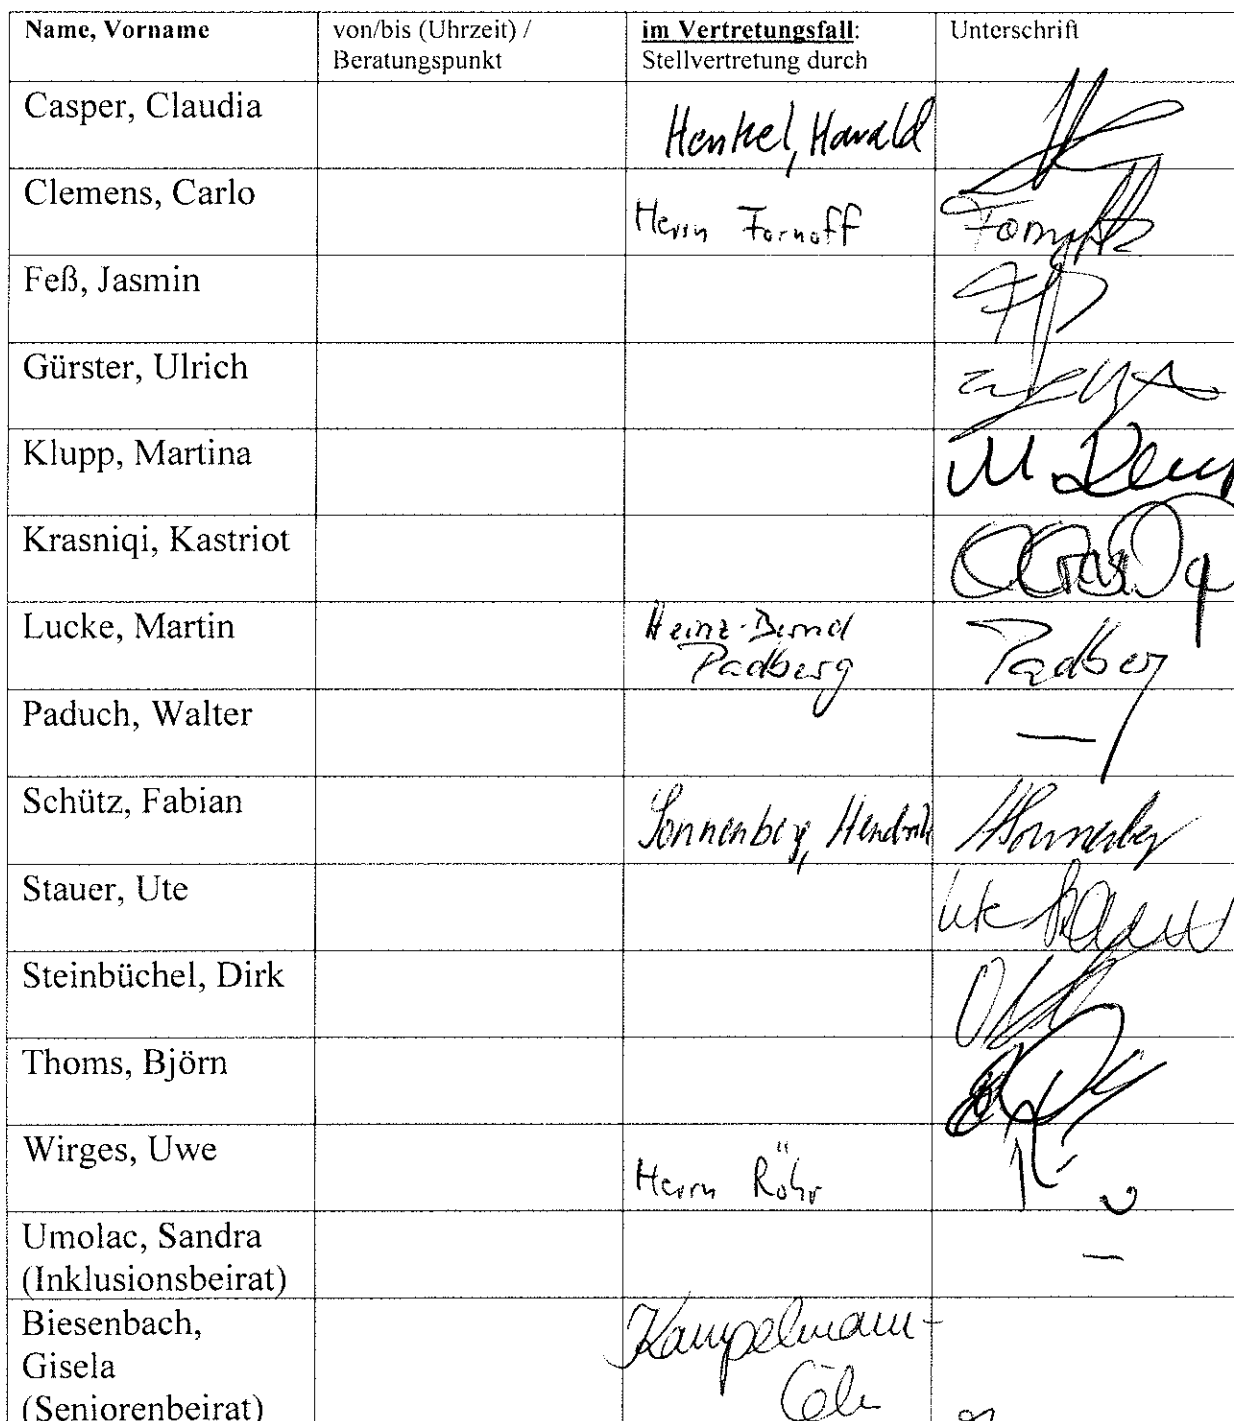 Name, Vorname
von/bis (Uhrzeit) /
Beratungspunkt
im Vertretungsfall:
Stellvertretung durch
Unterschrift
Casper, Claudia
Henkel, Harald
Clemens, Carlo
Herrn Fornoff
Feß, Jasmin
Gürster, Ulrich
Klupp, Martina
M.
Krasniqi, Kastriot
Lucke, Martin
Heinz-Bernd
Padberg
Padberg
Paduch, Walter
—
Schütz, Fabian
Sonnenberg, Hendrik
HSonnenberg
Stauer, Ute
Ute
Steinbüchel, Dirk
Thoms, Björn
Wirges, Uwe
Herrn Röhr
Umolac, Sandra
(Inklusionsbeirat)
—
Biesenbach,
Gisela
(Seniorenbeirat)